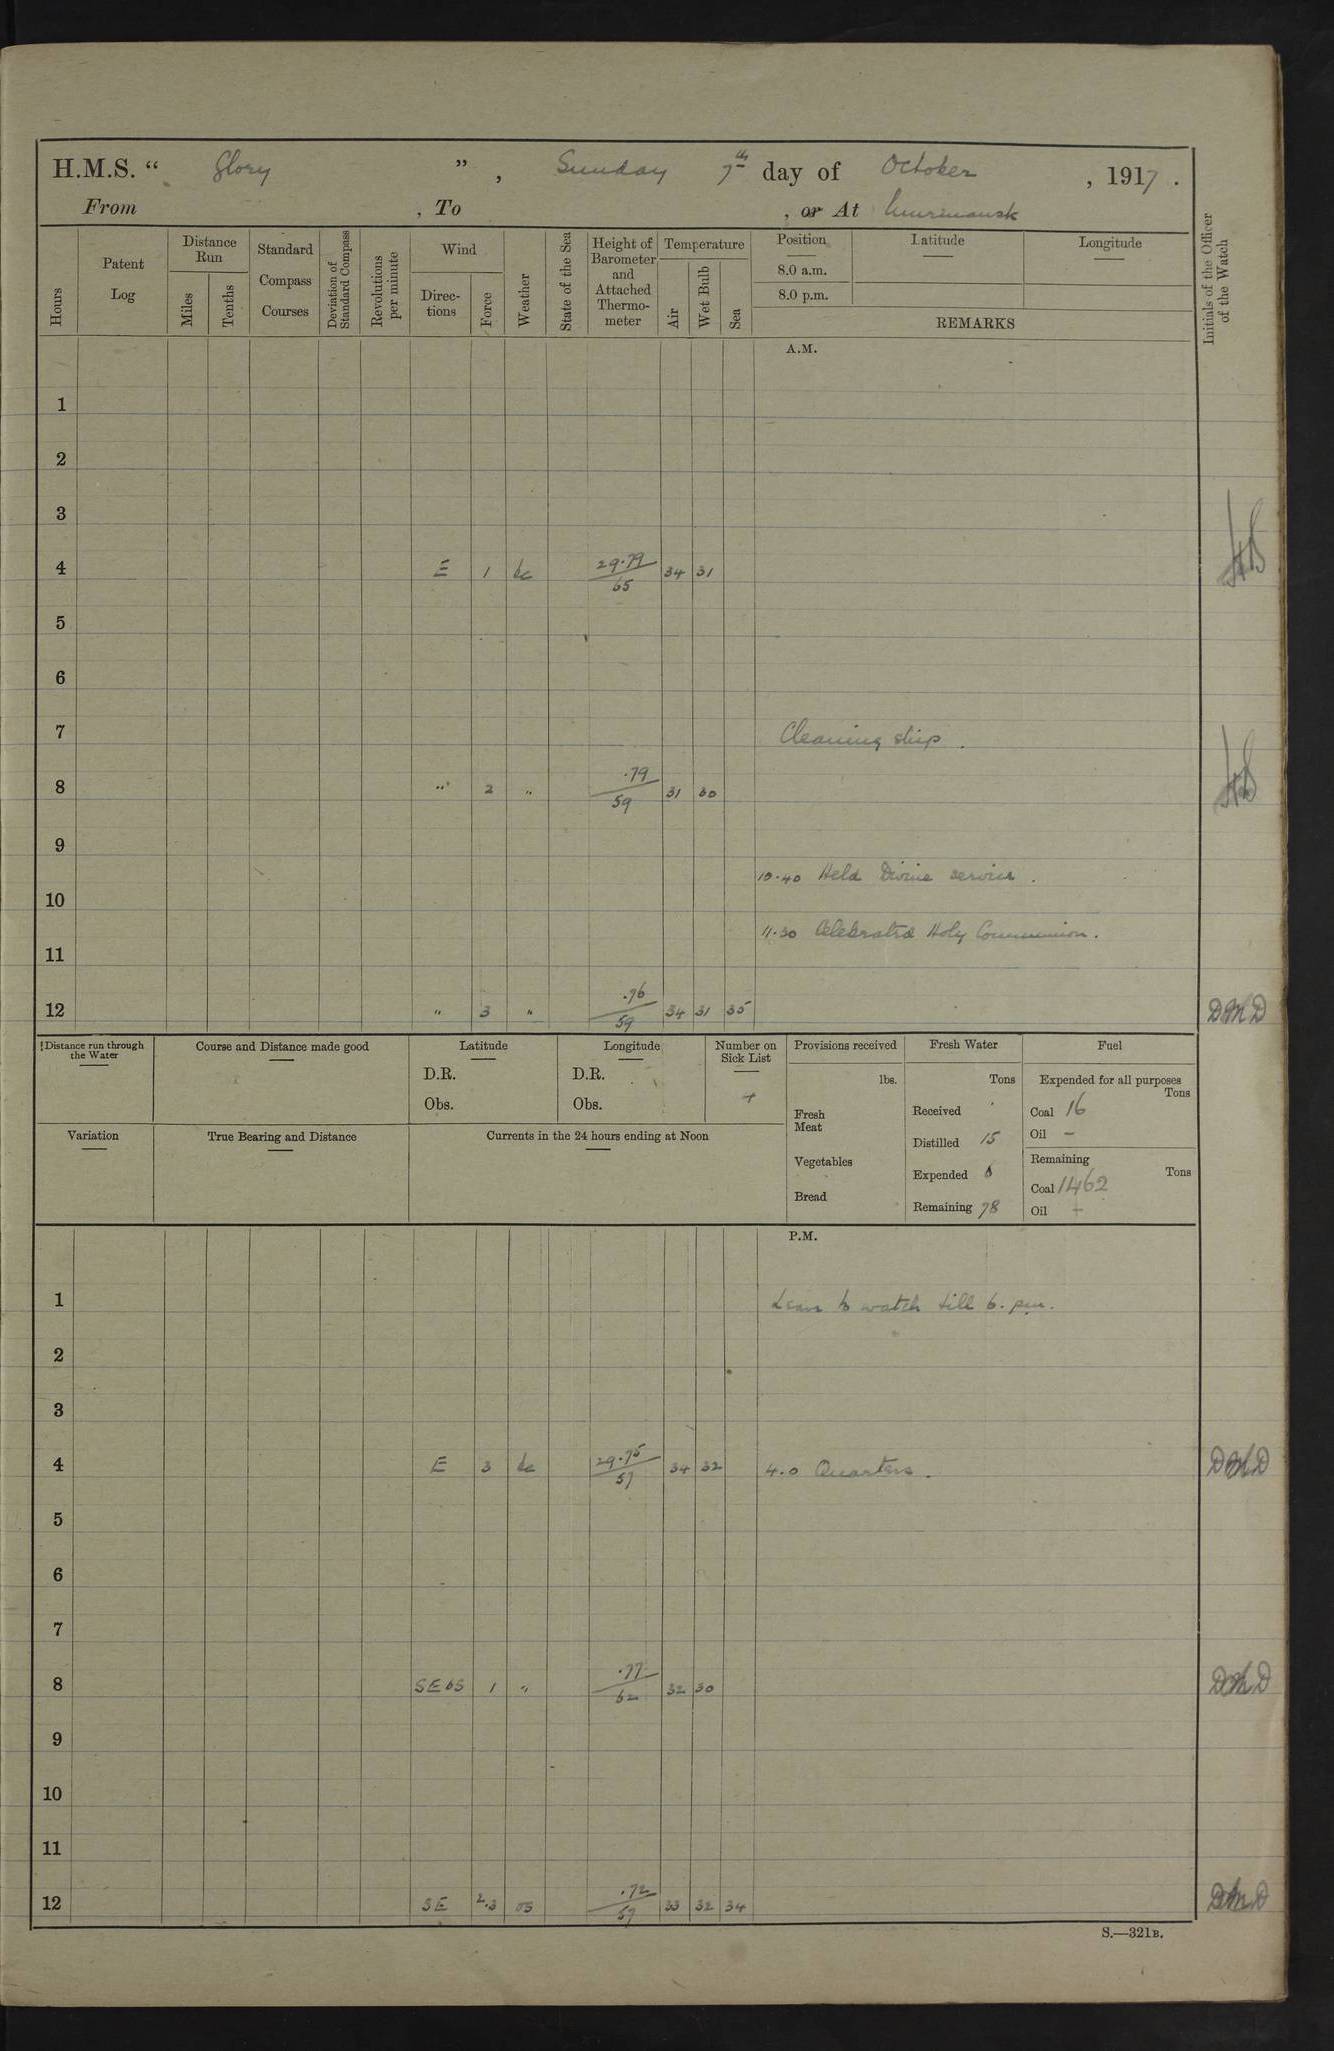 H.M.S. “ Glory ” , Sunday 7th day of October , 1917 .
From , To , or At Murmansk
Hours
Patent Log
Distance Run
Miles
Tenths
Standard Compass Courses
Deviation of Standard Compass
Revolutions per minute
Wind
Directions
Force
Weather
State of the Sea
Height of Barometer and Attached Thermometer
Temperature
Air
Wet Bulb
Sea
Position
8.0 a.m.
8.0 p.m.
Latitude
Longitude
REMARKS
Initials of the Officer of the Watch
A.M.
1
2
3
4 E 1 bc 29.79/65 34 31
5
6
7 Cleaning ship .
8 " 2 " .79/59 31 30
9
10.40 Held Divine service .
10
11.30 Celebrated Holy Communion .
11
12 " 3 " .76/59 34 31 35 DMD
Distance run through the Water
Course and Distance made good
Latitude
D.R.
Obs.
Longitude
D.R.
Obs.
Number on Sick List
Provisions received
lbs.
Fresh Meat
Vegetables
Bread
Fresh Water
Tons
Received
Distilled 15
Expended
Remaining 78
Fuel
Expended for all purposes
Tons
Coal 16
Oil –
Remaining
Tons
Coal 1462
Oil
Variation
True Bearing and Distance
Currents in the 24 hours ending at Noon
P.M.
1 Leave to watch till 6. pm.
2
3
4 E 3 bc 29.75/57 34 32 4.0 Quarters . DMD
5
6
7
8 SEbS 1 " .77/62 32 30 DMD
9
10
11
12 SE 2.3 os .72/57 33 32 34 DMD
S.—321B.